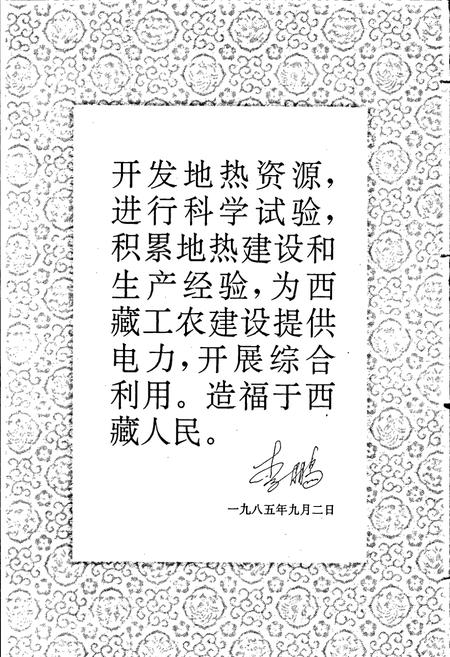 开发地热资源，
进行科学试验，
积累地热建设和
生产经验，为西
藏工农建设提供
电力，开展综合
利用。造福于西
藏人民。
李鹏
一九八五年九月二日